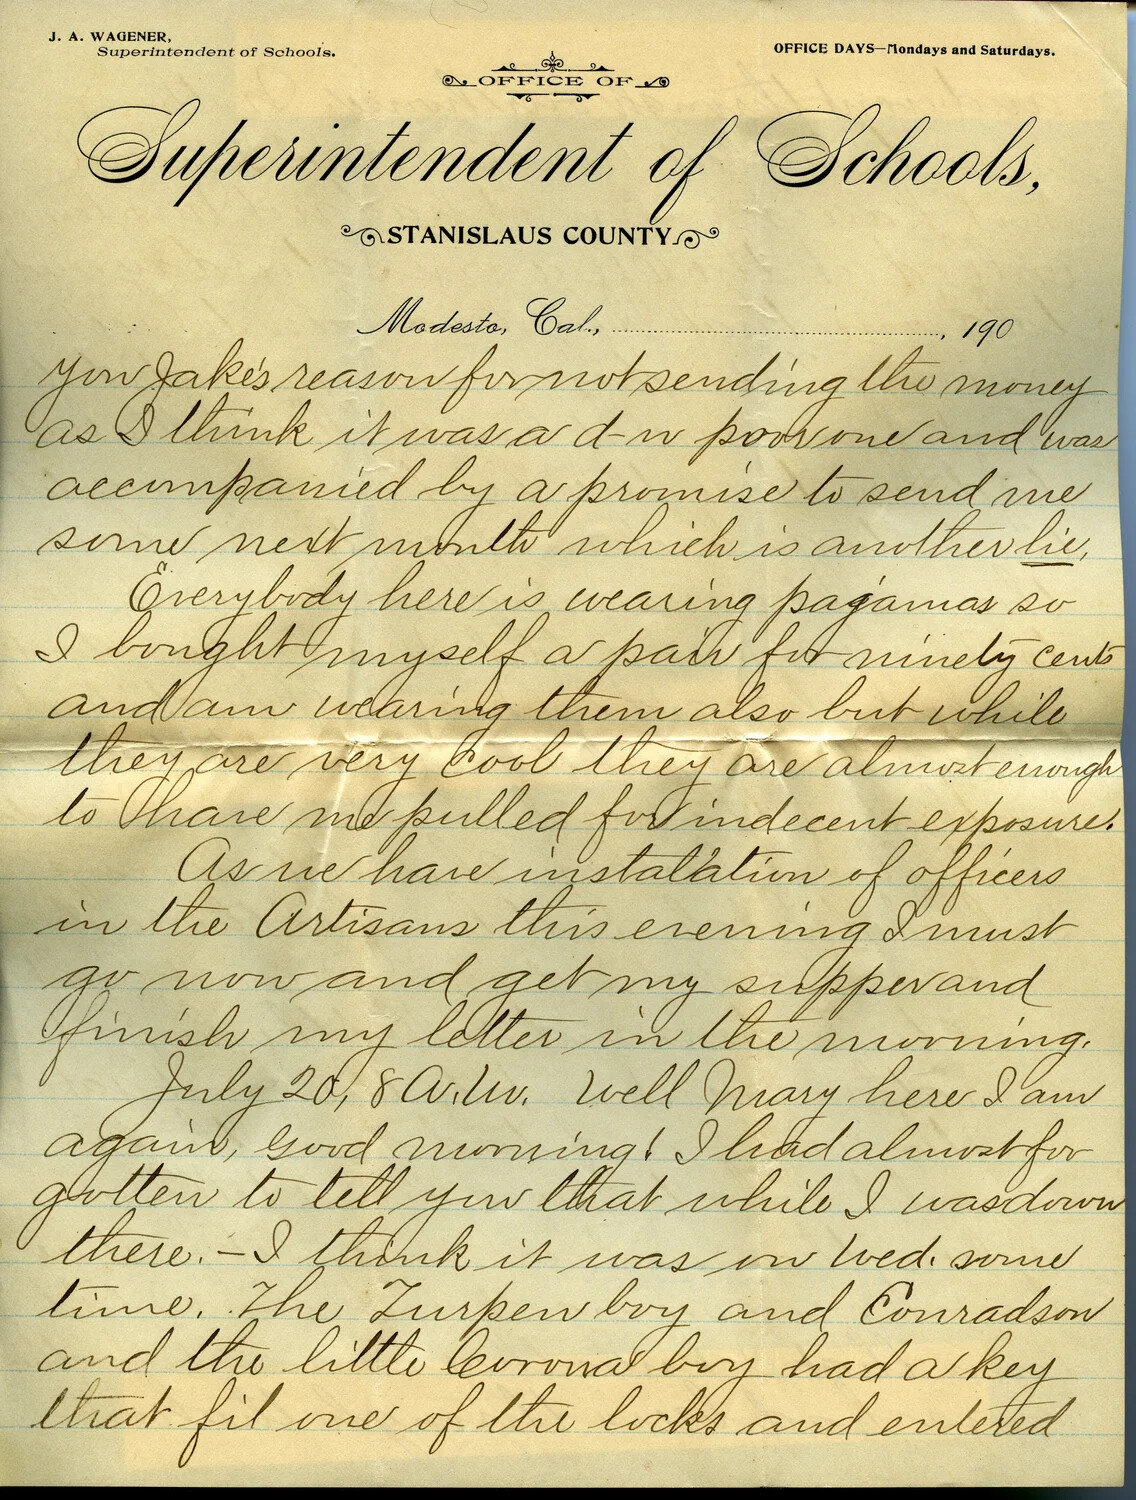 J. A. WAGENER,
Superintendent of Schools.
OFFICE DAYS—Mondays and Saturdays.
OFFICE OF
Superintendent of Schools,
STANISLAUS COUNTY
Modesto, Cal., , 190
you Jake's reason for not sending the money
as I think it was a d-n poor one and was
accompanied by a promise to send me
some next month which is another lie.
Everybody here is wearing pagamas so
I bought myself a pair for ninety cents
and am wearing them also but while
they are very cool they are almost enough
to have me pulled for indecent exposure.
As we have installation of officers
in the Artisans this evening I must
go now and get my supper and
finish my letter in the morning.
July 20, 8 A.M. Well Mary here I am
again, Good morning! I had almost for
gotten to tell you that while I was down
there. – I think it was on Wed. some
time. The Turpen boy and Conradson
and the little Corona boy had a key
that fit one of the locks and entered